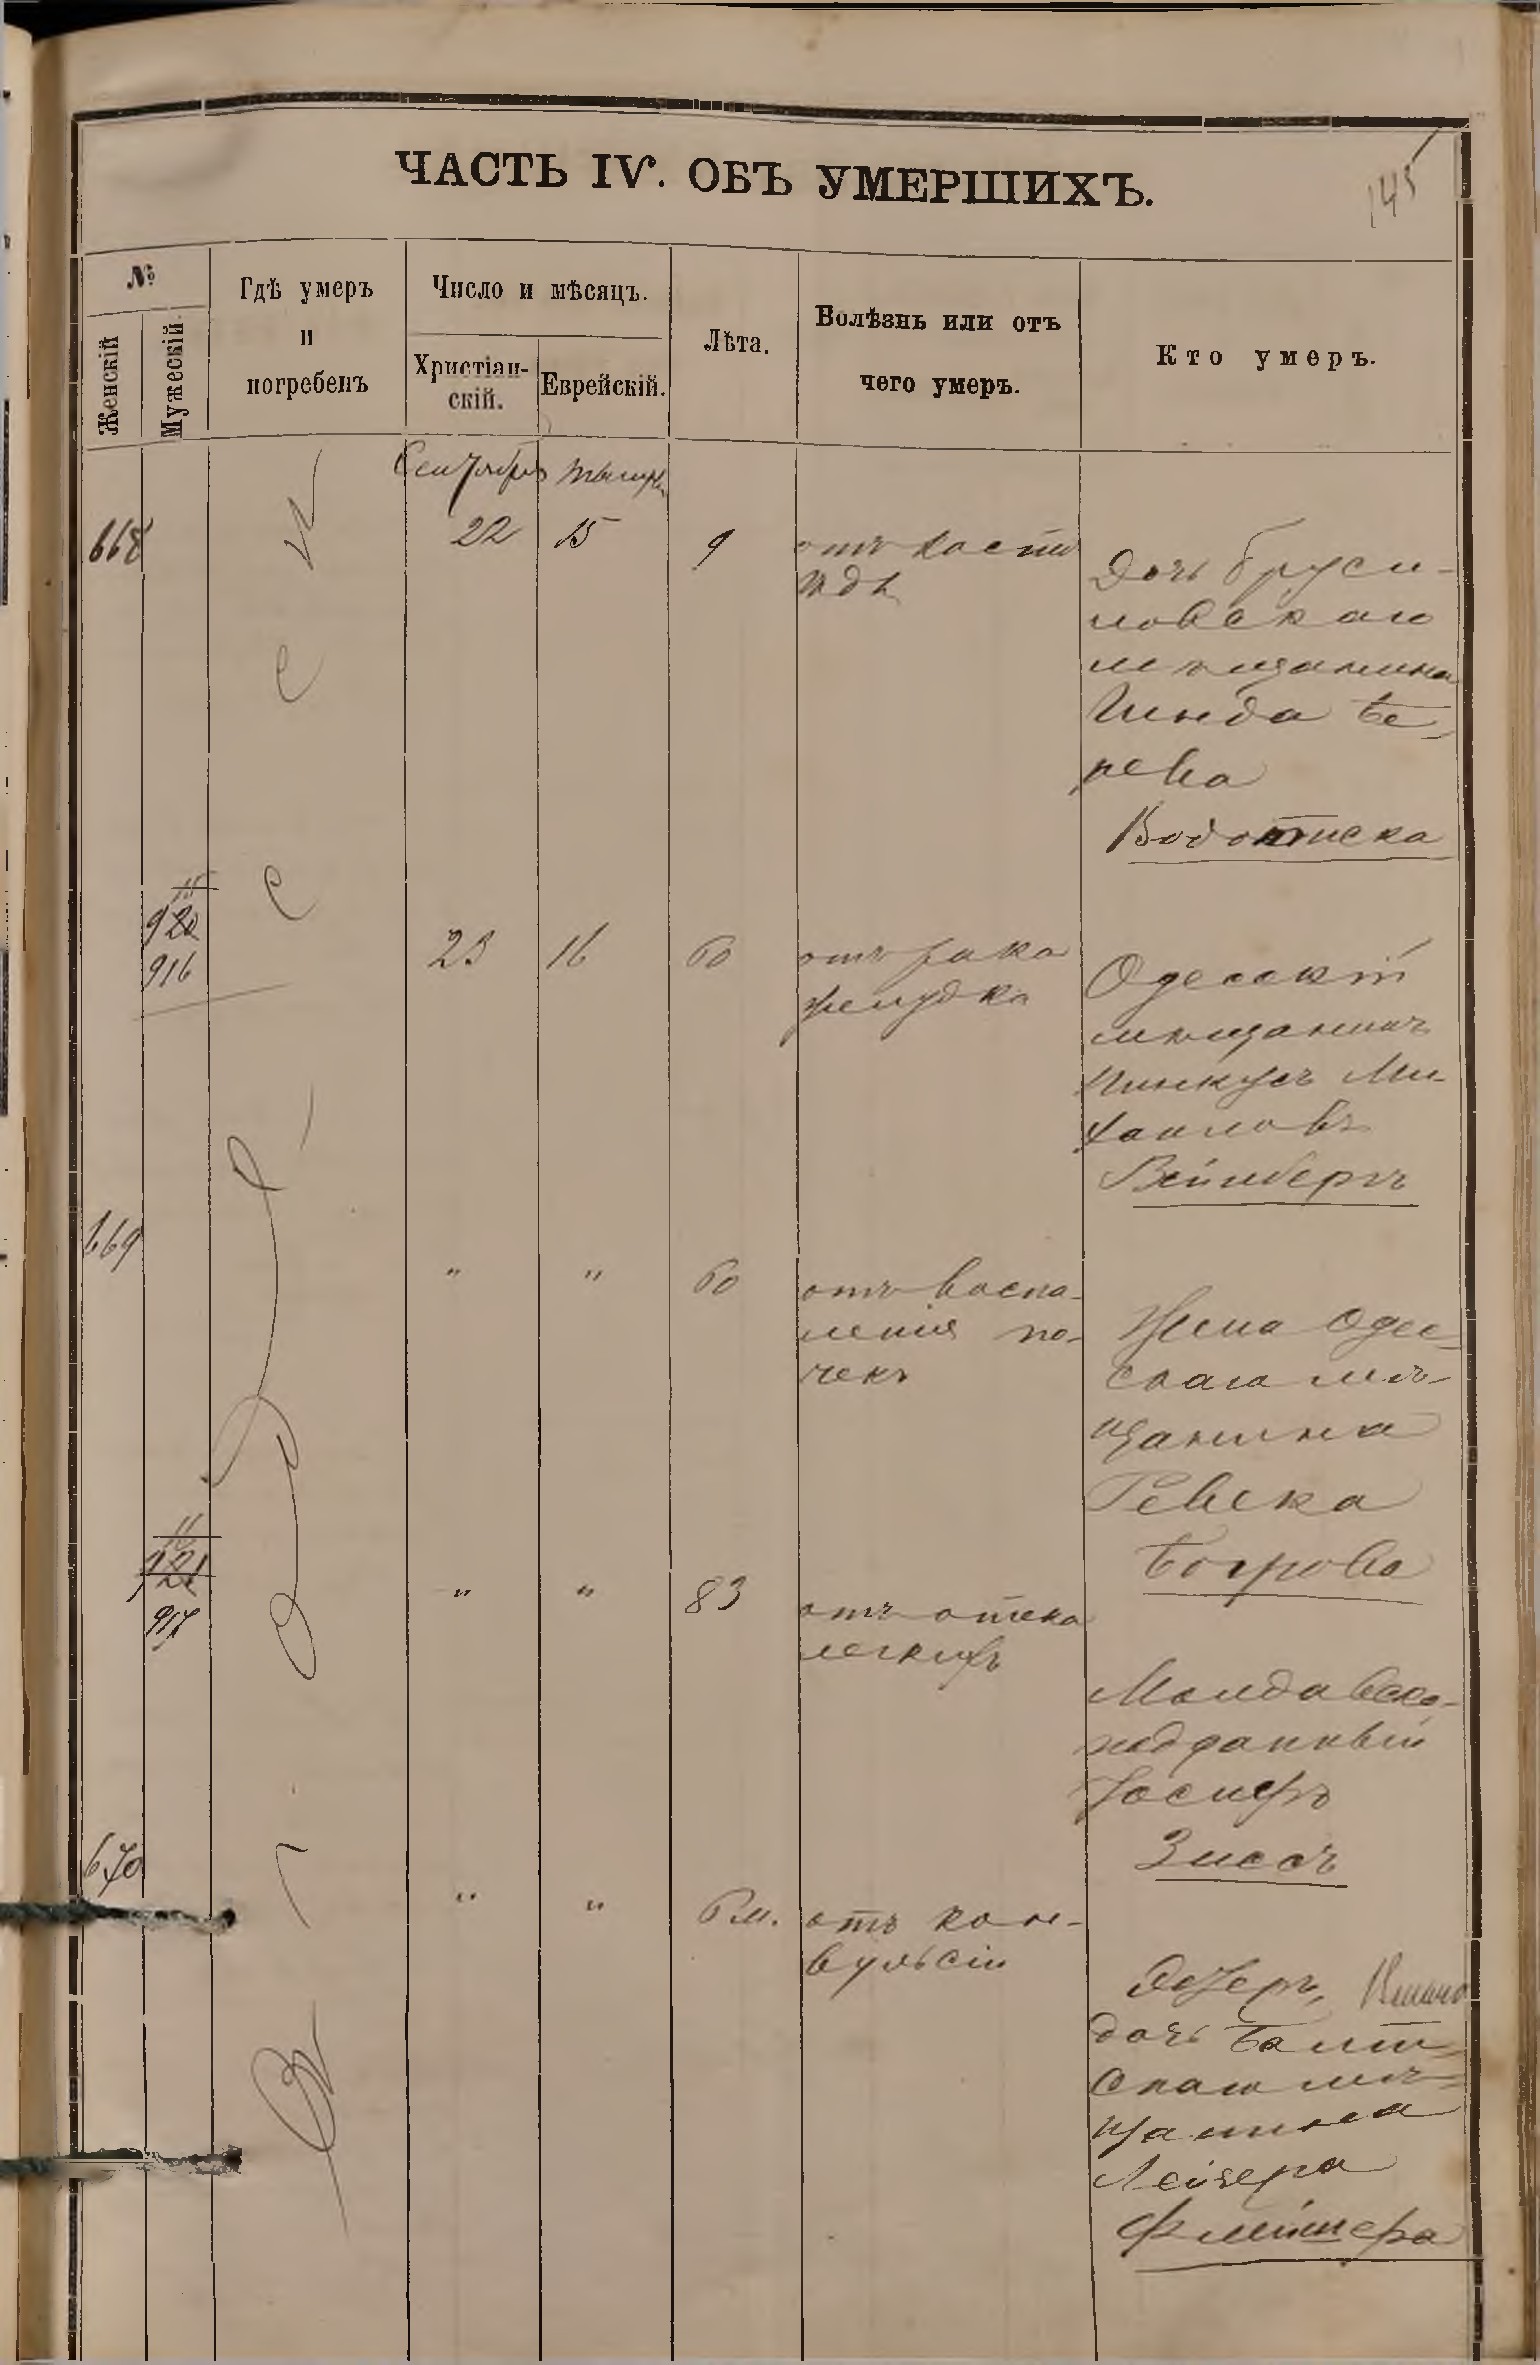 ЧАСТЬ IV. ОБЪ УМЕРШИХЪ.
145
№
Женскій
Мужескій.
Гдѣ умеръ
и
погребенъ
Число и мѣсяцъ.
Христіан-
скій.
Еврейскій.
Лѣта.
Болѣзнь или отъ
чего умеръ.
Кто умеръ.
Сентября
668
22
15
9
отъ
Дочь Бруси-
ловскаго
мѣщанина
920
916
23
16
60
отъ рака
желудка
Одесскій
мѣщанинъ
Пинкусъ Ми-
хаиловъ
Вейнбергъ
669
"
"
60
отъ воспа-
ленія по-
чекъ
Жена Одес-
скаго мѣ-
щанина
Ревека
Богрова
921
917
"
"
83
отъ отека
легкихъ
Молдавско-
подданный
Іосифъ
Зиссъ
670
"
"
6 м.
отъ кон-
вульсіи
дочь Балт-
скаго мѣ-
щанина
Лейзера
Флейшера
Въ г. Одессѣ